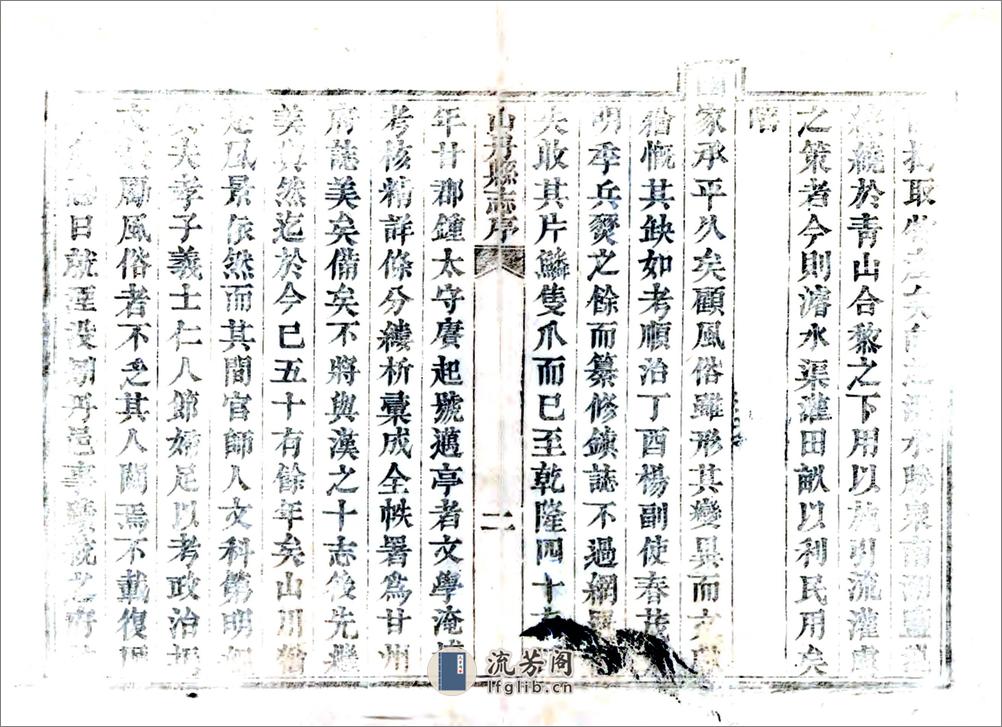 取 水 泉南
統於青山合黎之下用以 引流灌
之策者今則濬水渠灌田畝以利民用矣
昭
國
家承平久矣顧風俗雖形其變異而文
猶慨其缺如考順治丁酉楊副使春茂
明季兵燹之餘而纂修鎮誌不過網
失散其片鱗隻爪而已至乾隆四十
山丹縣志序 二
年廿郡鍾太守賡起號邁亭者文學淹
考核精詳條分縷析彙成全帙署為甘州
府誌美矣備矣不將與漢之十志後先繼
美與然迄於今已五十有餘年矣山川猶
是風景依然而其間官師人文科第明
夫孝子義士仁人節婦足以考政治
勵風俗者不乏其人闕焉不載復
日就湮沒 丹邑事 之府
流芳阁
lfglib.cn